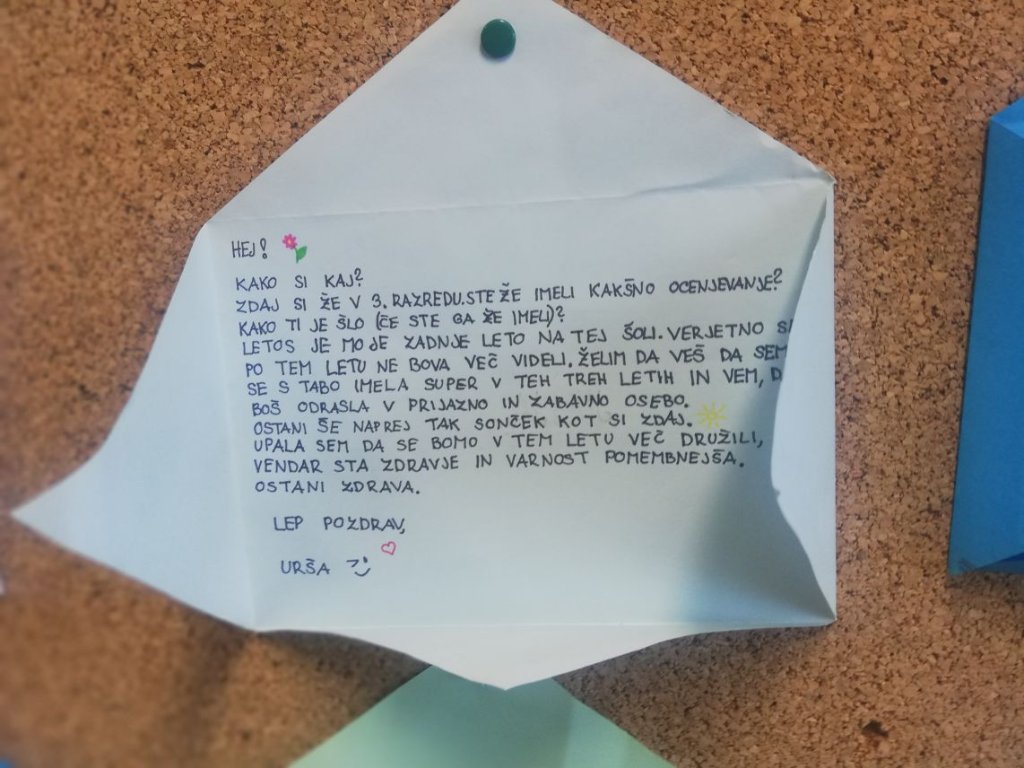 HEJ!
KAKO SI KAJ?
ZDAJ SI ŽE V 3. RAZREDU. STE ŽE IMELI KAKŠNO OCENJEVANJE?
KAKO TI JE ŠLO (ČE STE GA ŽE IMELI)?
LETOS JE MOJE ZADNJE LETO NA TEJ ŠOLI. VERJETNO
PO TEM LETU NE BOVA VEČ VIDELI. ŽELIM DA VEŠ DA SEM
SE S TABO IMELA SUPER V TEH TREH LETIH IN VEM,
BOŠ ODRASLA V PRIJAZNO IN ZABAVNO OSEBO.
OSTANI ŠE NAPREJ TAK SONČEK KOT SI ZDAJ.
UPALA SEM DA SE BOMO V TEM LETU VEČ DRUŽILI,
VENDAR STA ZDRAVJE IN VARNOST POMEMBNEJŠA.
OSTANI ZDRAVA.
LEP POZDRAV,
URŠA